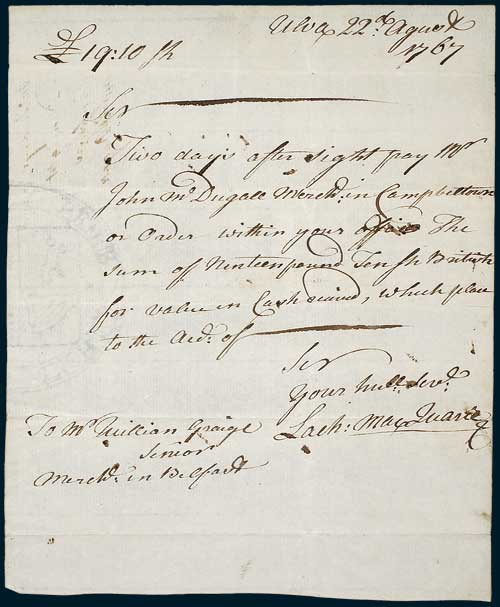 Ulva 22d. Agust
1767
£19:10 sh
Ser
Two days after sight pay Mr
John McDugall Merchd. in Campbeltown
or Order within your office The
sum of Ninteen pound Ten sh British
for value in Cash received, which place
to the Acd. of
Ser
Your hull. Servd.
Lach: MacQuarie
To Mr Willian Graige
Senior
Merchd. in Belfast